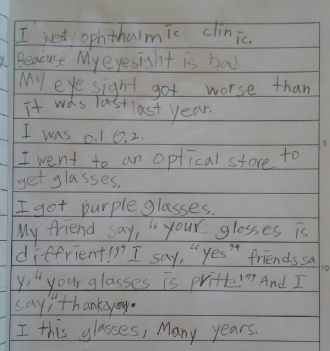 I went ophthalmic clinic.
Beacuse My eyesight is bad.
My eye sight got worse than
it was last last year.
I was 0.1 0.2.
I went to an optical store to
get glasses.
I got purple glasses.
My friend say, "your glasses is
diffrient!" I say, "yes" friends sa
y, "your glasses is pritte!" And I
say, "thank you.
I this glasses, Many years.
5
10